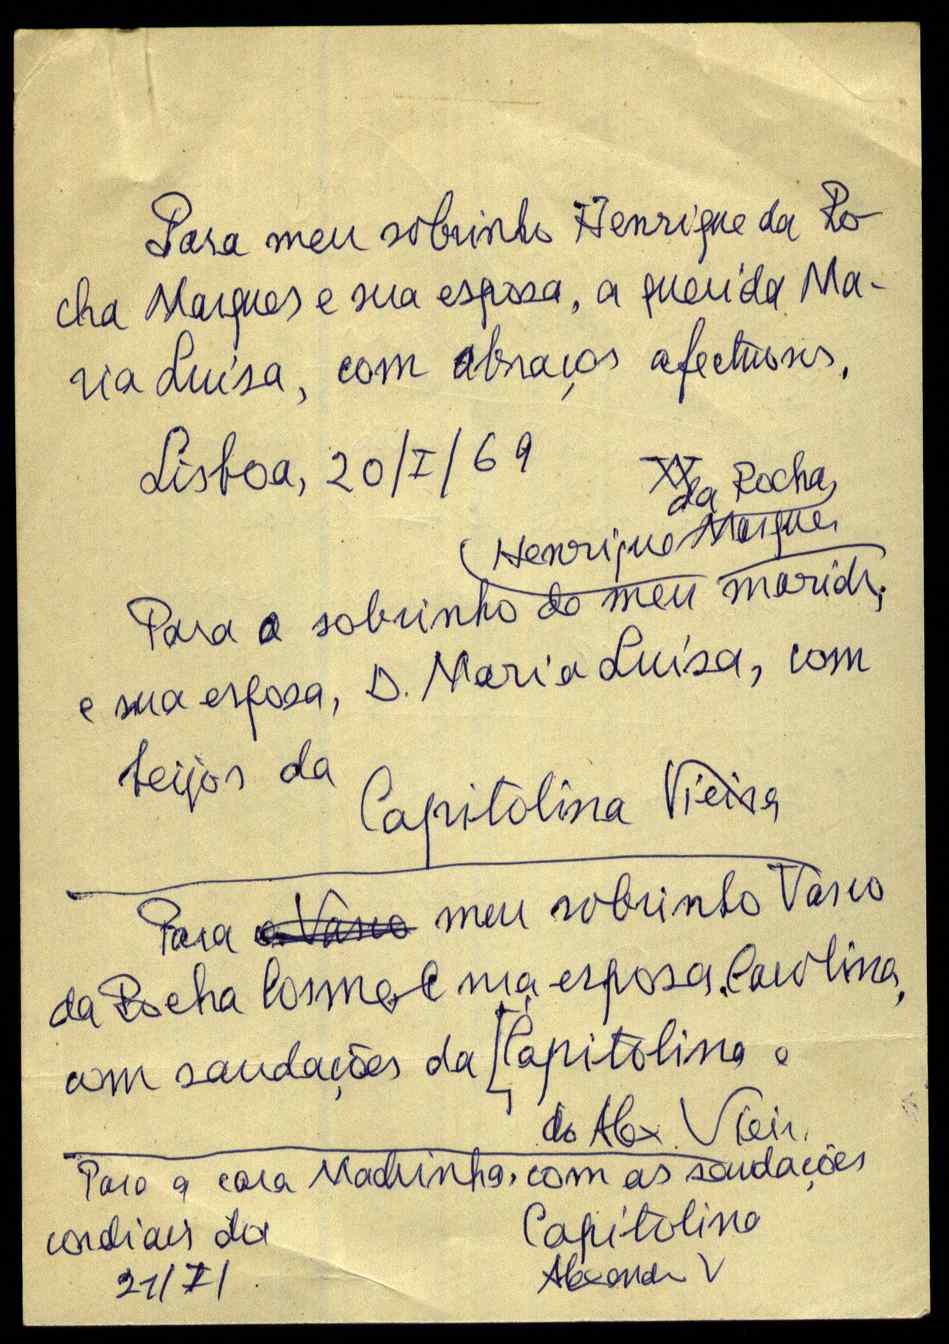 Para meu sobrinho Henrique da Ro-
cha Marques e sua esposa, a querida Ma-
ria Luísa, com abraços afectuosos.
Lisboa, 20/I/69
da Rocha
Henrique Marques
Para o sobrinho do meu marido,
e sua esposa, D. Maria Luísa, com
beijos da
Capitolina Vieira
Para o Vasco meu sobrinho Vasco
da Rocha Cosme, e sua esposa, Carolina,
com saudações da Capitolina e
do Alex. Vieira
Para a cara Madrinha, com as saudações
cordiais da Capitolina
21/I/ Alexandre V